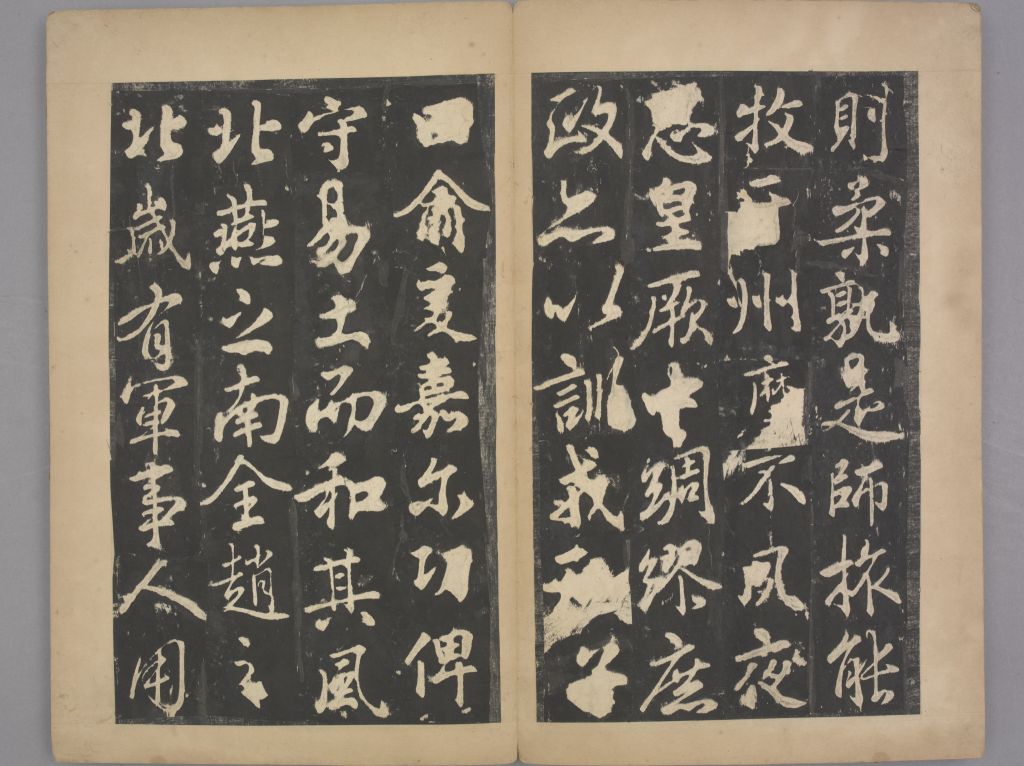 則柔孰是師旅能
牧于州靡不夙夜
皇厥綢繆庶
政亦以訓我天子
曰俞爰嘉尔功俾
守易土而和其風
北燕之南全趙之
北歲有軍事人用